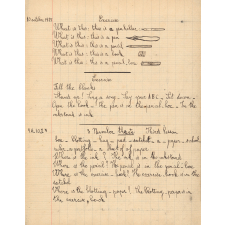 Exercise
What is this: this is a penholder
What is this: this is a pen
What is this: this is a pencil
What is this: this is a book
What is this: this is a pencil box
Exercise
Fill the blanks
Stand up! Sing a song. Say your ABC. Sit down.
Open the book. The pen is in the pencil box. In the
inkstand is ink
Third Lesson
box. Blotting
a sheet of paper.
Where is the ink? The ink is in the inkstand
Where is the pencil? The pencil is in the pencil box
Where is the exercise-book? The exercise book is in the
satchel
Where is the blotting-paper? The blotting paper is in
the exercise book.